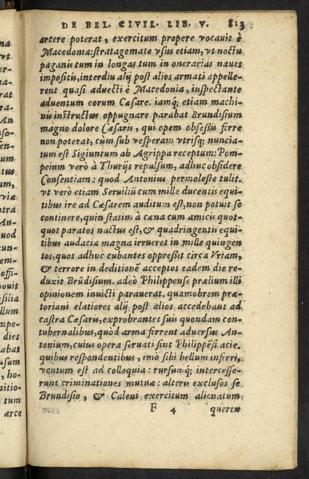 DE BEL. CIVIL. LIB. V. 813
arcere poterat, exercitum propere vocauit è
Macedonia: stratagemate vsus etiam, vt noctu
paganū tum in longas tum in onerarias naues
impositū, interdiu alij post alios armati appelle-
rent quasi aduecti è Macedonia, inspectante
aduentum eorum Cæsare. iamq; etiam machi-
nis instructus oppugnare parabat Brundisium
magno dolore Cæsaris, qui opem obsessis ferre
non poterat, cùm sub vesperam vtrisq; nuncia-
tum est Sigiuntum ab Agrippa receptum: Pom-
peium verò à Thurijs repulsum, adhuc obsidere
Consentiam: quod Antonius permoleste tulit.
vt verò etiam Seruiliū cum mille ducentis equi-
tibus ire ad Cæsarem auditum est, non potuit se
continere, quin statim à cæna cum amicis quot-
quot paratos nactus est, & quadringentis equi-
tibus audacia magna irrueret in mille quingen
tos, quos adhuc cubantes oppressit circa Vriam,
& terrore in deditionē acceptos eadem die re-
duxit Brūdisium. adeò Philippense prælium illi
opinionem inuicti parauerat. quamobrem præ-
toriani elatiores alij post alios accedebant ad
castra Cæsaris, exprobrantes suis quondam con-
tubernalibus, quòd arma ferrent aduersus An-
tonium, cuius opera seruati sint Philippēsi acie.
quibus respondentibus, imò sibi bellum inferri,
ventum est ad colloquia: rursumq; intercesse-
runt criminationes mutuæ: alteris exclusos se
Brundisio, & Caleni exercitum alienatum
F 4 queren